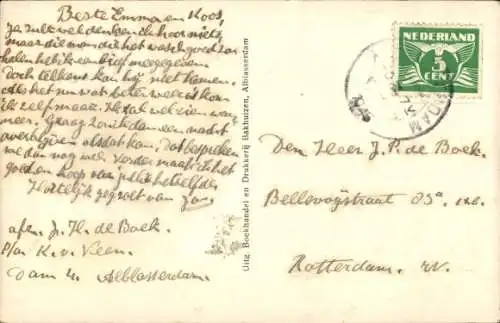 Beste Emma en Koos,
Je zult wel denken ik hoor niets
maar die man die het wasch goed zou
halen heb ik een brief meegegeven
Doch telkens kan hij niet komen.
Als het nu wat beter weer is kom
ik zelf maar. Het zal wel eens
meer. Graag zou ik dan een nacht
overblijven als dat kan. Dat bespreken
we dan nog wel. Verder maak ik het
goed en hoop van jullie hetzelfde
Hartelijk gegroet van
afz. J. H. de Boek.
p/a K. v. Veen.
Dam 4. Alblasserdam.
Uitg. Boekhandel en Drukkerij Bakhuizen, Alblasserdam
NEDERLAND
5
CENT
DAM
Den Heer J. P. de Boek.
Bellevoijstraat 85a
Rotterdam. W.